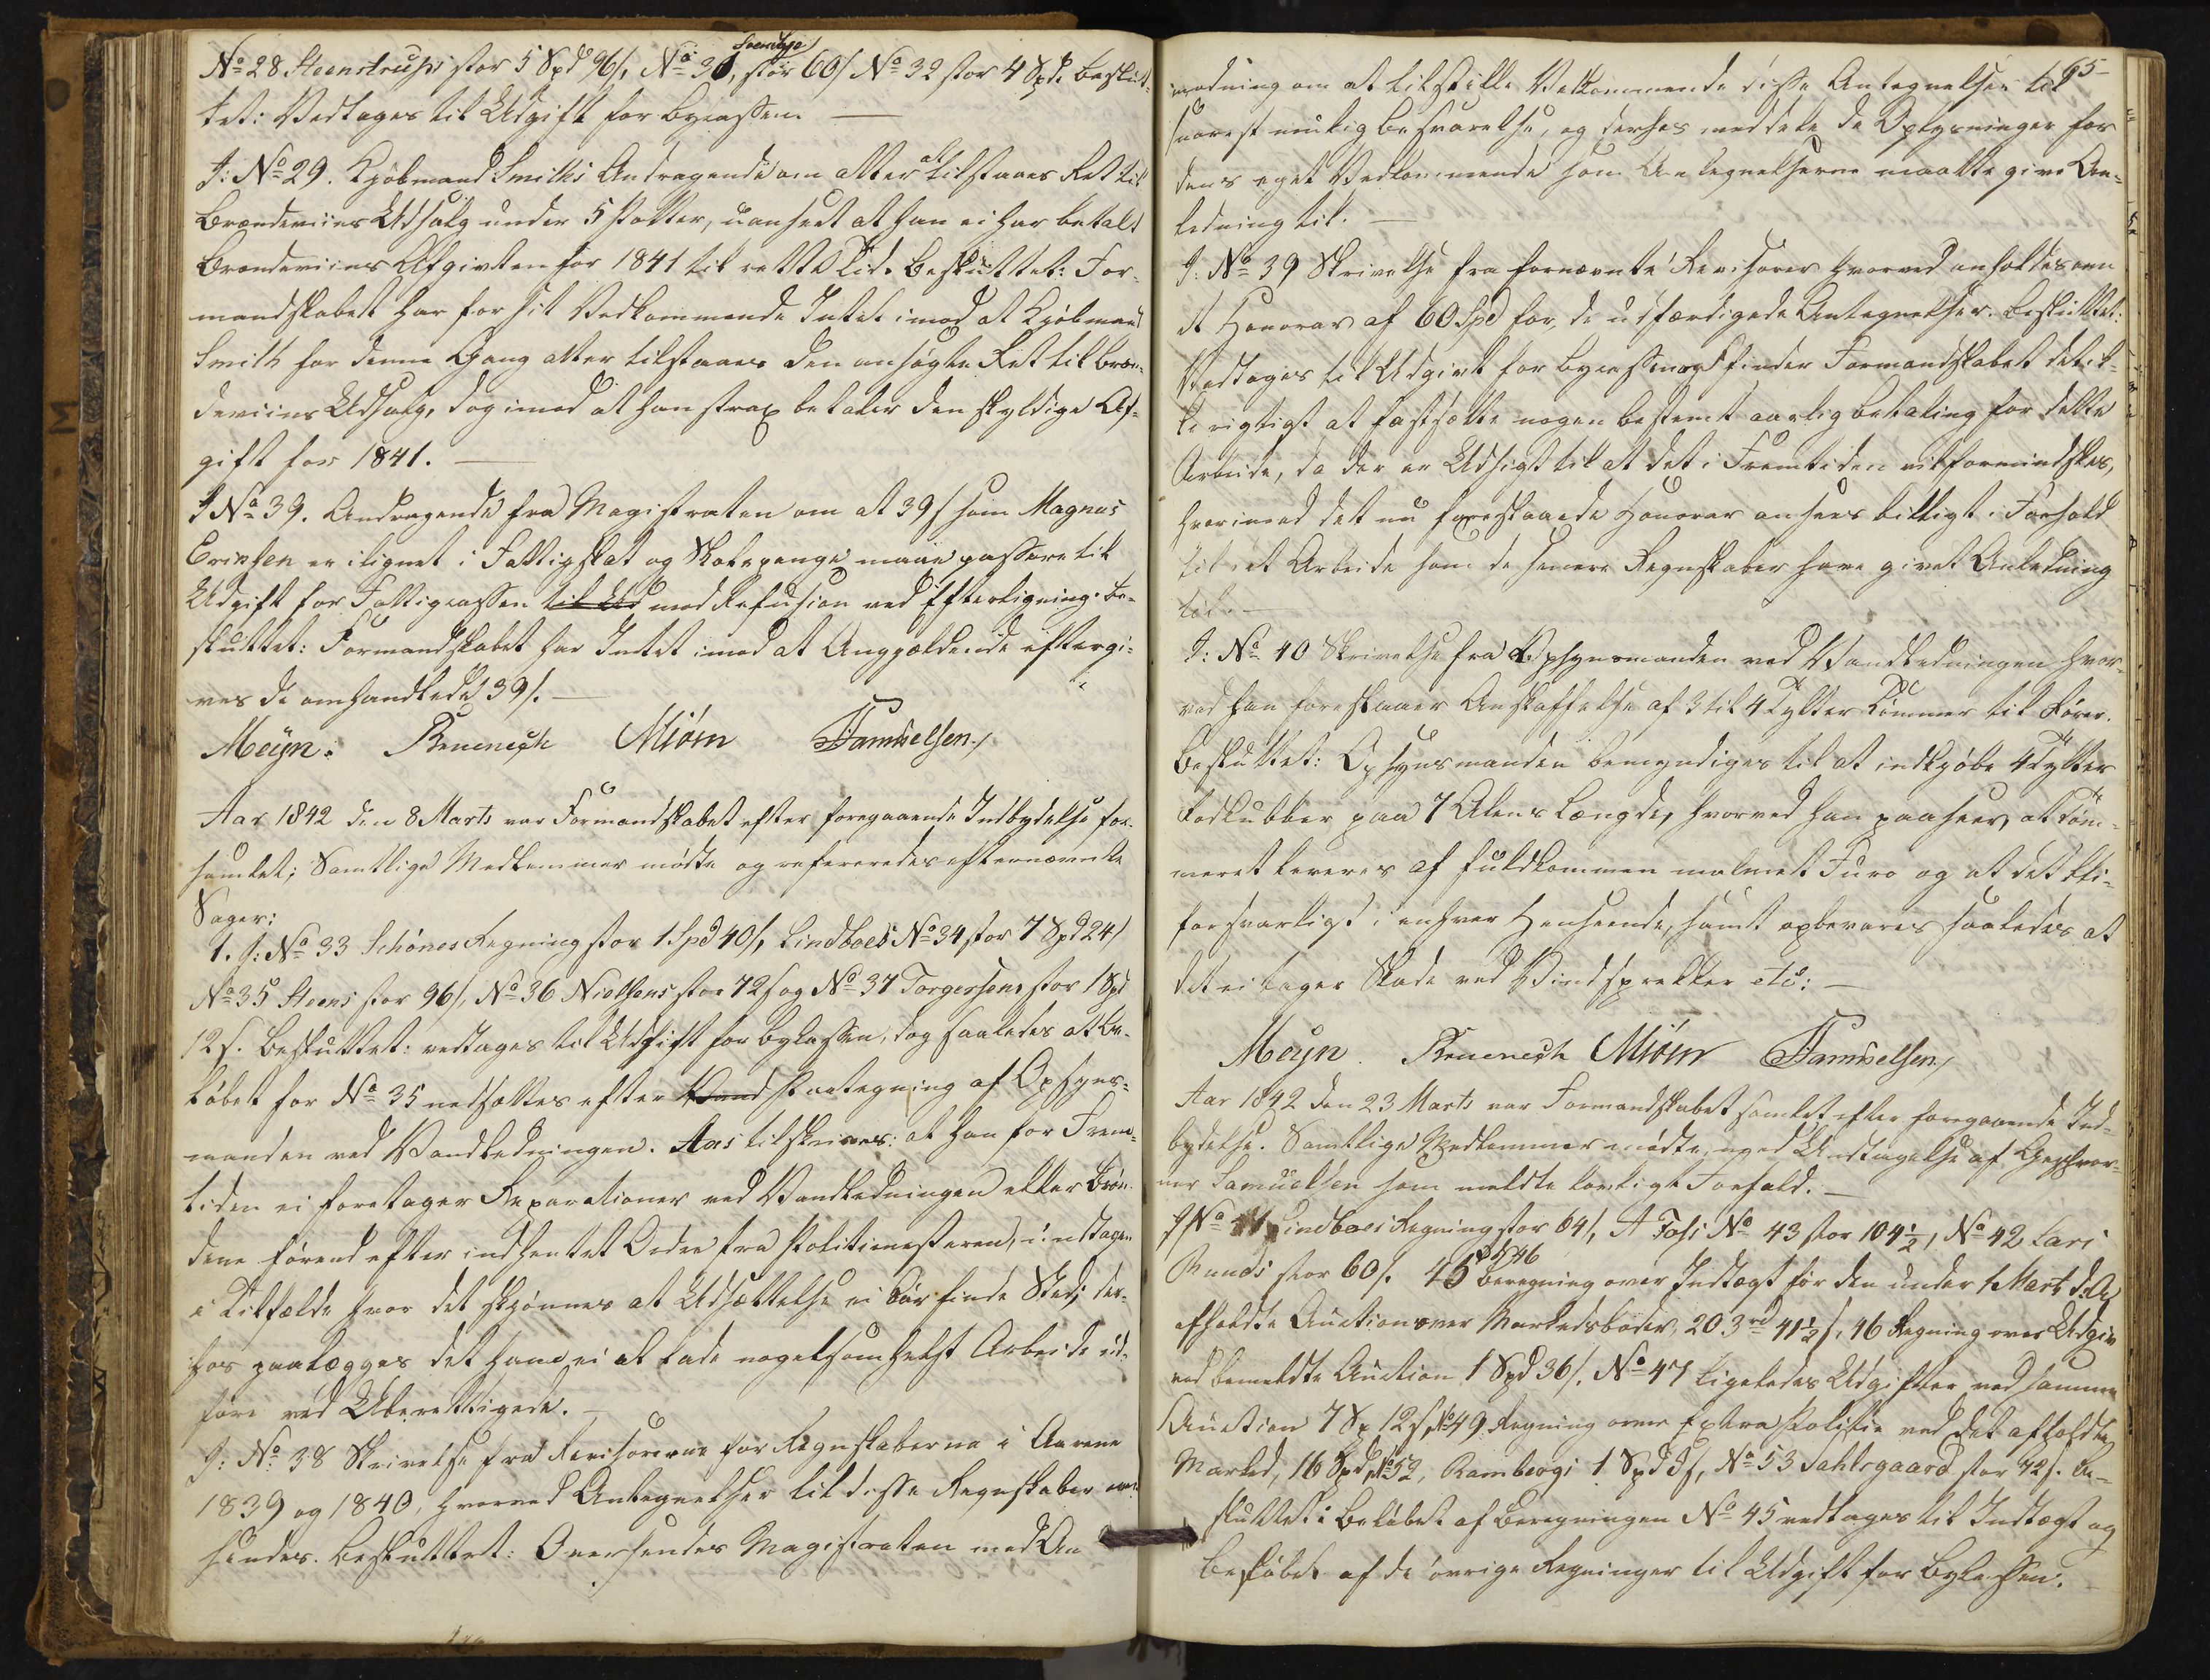 No 28 Steenstrups stor 5 Spd 96 s, No 30, Svendsen stor 60 s No 32 stor 4 Spd. Beslut-
tet: Vedtages til Udgift for Bycassen. —
J: No 29. Kjøbmand Smiths Andragende om atter at tilstaaes Ret til
Brændeviins Udsalg under 5 Potter, uanseet at han ei har betalt
Brændeviins Afgivten for 1841 til rette Tid. Besluttet: For-
mandskabet har for sit Vedkommende Intet imod at Kjøbmand
Smith for denne Gang atter tilstaaes den ansøgte Ret til Bræn-
deviins Udsalg, dog imod at han strax betaler den skyldige Af-
gift for 1841. —
J No 39. Andragende fra Magistraten om at 39 s som Magnus
Erichsen er ilignet i Fattigskat og Skolepenge maae passere til
Udgift for Fattigcassen til Ud mod Refusion ved Efterligning. Be-
sluttet: Formandskabet har Intet imod at Angjældende eftergi-
ves de omhandlede 39 s. —
Meyn. Bruenech Miörn Samuelsen
Aar 1842 den 8 Marts var Formandskabet efter foregaaende Indbydelse for-
samlet; Samtlige Medlemmer mødte og refereredes efternævnte
Sager:
1. J: No 33 Schönes Regning stor 1 Spd 40 s, Lindboes No 34 stor 7 Spd 24 s
No 35 Steens stor 96 s, No 36 Nielsens stor 72 s og No 37 Torgersens stor 1 Spd
12 s. Besluttet: vedtages til Udgift for Bykassen, dog saaledes at Be-
løbet for No 35 nedsættes efter Vand Paategning af Opsyns-
manden ved Vandledningen. Aas tilskrives: at han for Frem-
tiden ei foretager Reparationer ved Vandledningen eller Brøn-
dene førend efter indhentet Ordre fra Politimesteren, undtagen
i Tilfælde hvor det skjønnes at Udsættelse ei bør finde Sted; der-
hos paalægges det ham ei at lade nogetsomhelst Arbeide ud-
føre ved Uberettigede. —
J: No 38 Skrivelse fra Revisorerne for Regnskaberne i Aarene
1839 og 1840, hvorved Antegnelser til disse Regnskaber over-
sendes. Besluttet: Oversendes Magistraten med An-
65
modning om at tilstille Vedkommende disse Antegnelser til
snarest mulig Besvarelse, og derhos meddele de Oplysninger for
dens eget Vedkommende som Antegnelserne maatte give An-
ledning til. —
J: No 39 Skrivelse fra fornævnte Revisorer hvorved anholdes om
et Honorar af 60 Spd for de udfærdigede Antegnelser. Besluttet:
Vedtages til Udgivt for Bycassen og finder Formandskabet det ik-
ke rigtigt at fastsætte nogen bestemt aarlig betaling for dette
Arbeide, da der er Udsigt til at det i Fremtiden vil formindskes,
hvorimod det nu foreslaaede Honorar ansees billigt i Forhold
til det Arbeide som de senere Regnskaber have givet Anledning
til. —
J: No 40 Skrivelse fra Opsynsmanden ved Vandledningen hvor-
ved han foreslaaer Anskaffelse af 3 til 4 Tylter Tømmer til Rører.
Besluttet: Opsynsmanden bemyndiges til at indkjøbe 4 Tylter
Rodkubber paa 7 Alens Længde, hvorved han paaseer, at Tøm-
meret leveres af fuldkommen malmet Furu og at det bli-
forsvarligt i enhver Henseende, samt opbevares saaledes at
det ei tager Skade ved Vindsprekker etc: —
Meyn. Bruenech Miörn Samuelsen
Aar 1842 den 23 Marts var Formandskabet samlet efter foregaaende Ind-
bydelse. Samtlige Medlemmer mødte, med Undtagelse af
Samuelsen som meldte lovligt Forfald. —
J No 41 Lindboes Regning stor 64 s, A Foss No 43 stor 104 1/2 s, No 42 Lars
Runds stor 60 s. 45 Beregning over Indtægt for den under 1 Marts d: A
afholdte Auction over Markedsboder, 20. 3 41 1/2 s, 46 Regning over Udgiv
ved bemeldte Auction 1 Spd 36 s. No 47 ligeledes Udgifter ved samme
Auction 7 Sp 12 s, No 49 Regning over Extra Politie ved det afholdte
Marked, 16 Spd, No 52, Rambergs 1 Spd s, No 53 Dahlsgaard stor 72 s. Be-
sluttet: Beløbet af Beregningen No 45 vedtages til Indtægt og
Beløbet af de øvrige Regninger til Udgift for Bykassen.